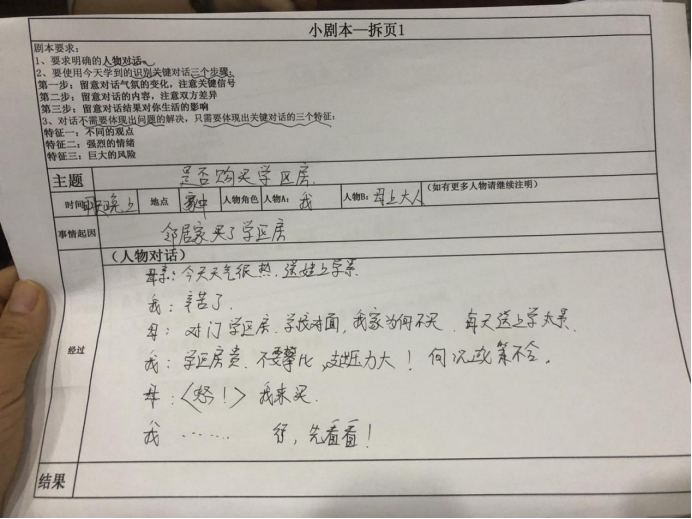 小剧本—拆页1
剧本要求:
1、要求明确的人物对话。
2、要使用今天学到的识别关键对话三个步骤:
第一步:留意对话气氛的变化,注意关键信号
第二步:留意对话的内容,注意双方差异
第三步:留意对话结果对你生活的影响
3、对话不需要体现出问题的解决,只需要体现出关键对话的三个特征:
特征一:不同的观点
特征二:强烈的情绪
特征三:巨大的风险
主题 是否购买学区房
时间 晚上 地点 家中 人物角色 人物A: 我 人物B: 母上大人 (如有更多人物请继续注明)
事情起因 邻居家买了学区房
经过
(人物对话)
母亲:今天天气很热,送娃上学累
我:辛苦了.
母:对门学区房.学校对面,我家为何不买.每天送上学太累.
我:学区房贵.不要攀比,压力大!何况政策不合。
母:〈怒!〉我来买.
我 …… 行,先看看!
结果